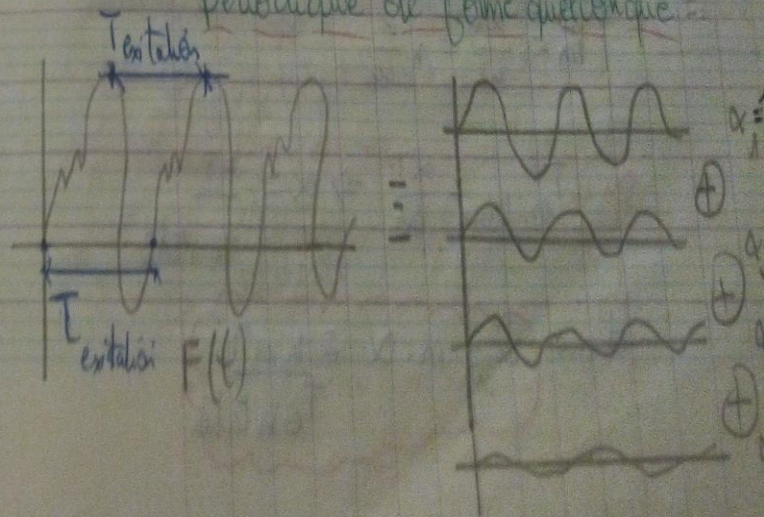 périodique de forme quelconque
T exitation
T
exitation
F(t)
≡
α =
1
⊕
α
⊕
⊕